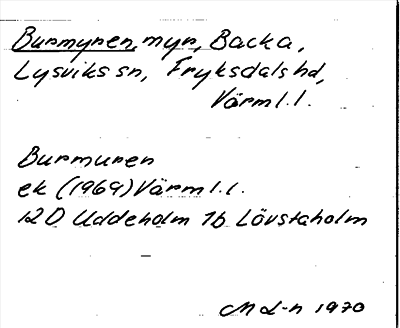 Burmyren, myr, Backa,
Lysviks sn, Fryksdals hd,
Värml.l.
Burmuren
ek (1969) Värml.l.
12D Uddeholm 7b Lövstaholm
M L-n 1970